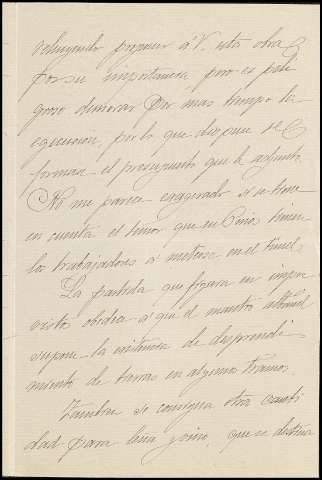 rehuyendo proponer á V. esta obra
por su importancia pero es peli
groso demorar por mas tiempo la
egecucion, por lo que dispuse se
formara el presupuesto que le adjunto.
No me parece exagerado si se tiene
en cuenta el temor que en tienen
los trabajadores á meterse en el tunel.
La partida que figura en impre
vistos obedece á que el maestro albañil
supone la existencia de desprendi
miento de tierras en algunos tramos.
Tambien se consigna otra canti
dad para leña y vino, que se destina